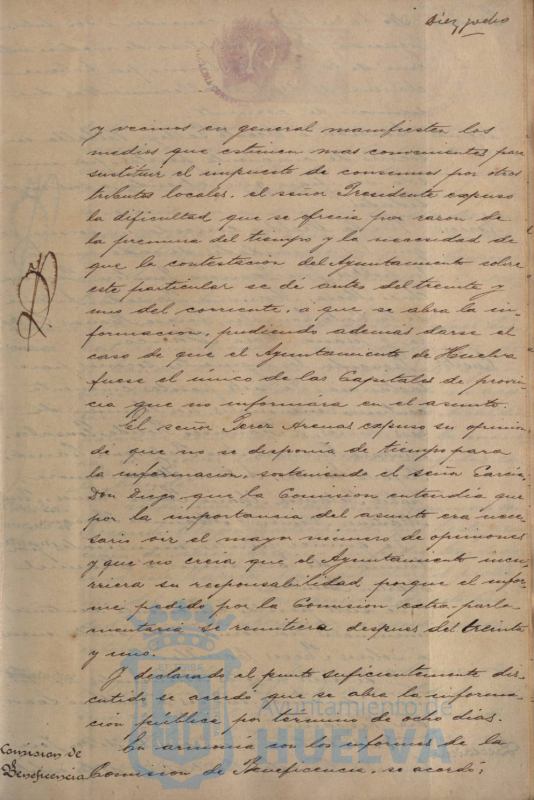 Diez y ocho
y vecinos en general manifiesten los
medios que estimen mas convenientes para
sustituir el impuesto de consumos por otros
tributos locales. el señor Presidente expuso
la dificultad que se ofrecia por razon de
la premura del tiempo y la necesidad de
que la contestacion del Ayuntamiento sobre
este particular se dé antes del treinta y
uno del corriente, á que se abra la in-
formacion, pudiendo además darse el
caso de que el Ayuntamiento de Huelva
fuese el único de las Capitales de provin-
cia que no informára en el asunto.
El señor Perez Arenas expuso su opinion
de que no se disponia de tiempo para
la informacion, sosteniendo el señor Garcia
Don Diego que la Comision entendia que
por la importancia del asunto era nece-
sario oir el mayor número de opiniones
y que no creia que el Ayuntamiento incu-
rriera en responsabilidad porque el infor-
me pedido por la Comision extra-parla-
mentaria se remitiera despues del treinta
y uno.
Y declarado el punto suficientemente dis-
cutido se acordó que se abra la informa-
cion pública por término de ocho dias.
Comision de
Beneficencia
En armonia con los informes de la
Comision de Beneficencia, se acordó:
Ayuntamiento de
HUELVA